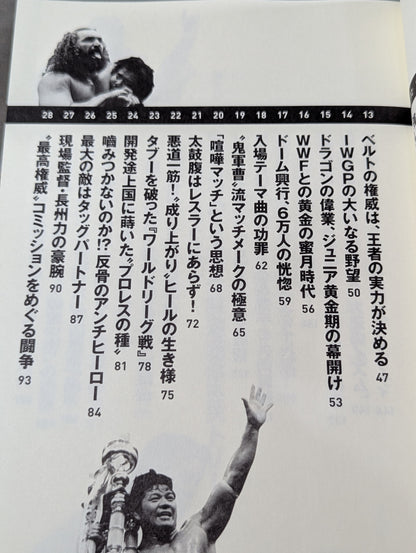 13 ベルトの権威は、王者の実力が決める 47
14 IWGPの大いなる野望 50
15 ドラゴンの偉業、ジュニア黄金期の幕開け 53
16 WWFとの黄金の蜜月時代 56
17 ドーム興行、6万人の恍惚 59
18 入場テーマ曲の功罪 62
19 〝鬼軍曹〟流マッチメークの極意 65
20 「喧嘩マッチ」という思想 68
21 太鼓腹はレスラーにあらず! 72
22 悪道一筋!〝成り上がり〟ヒールの生き様 75
23 タブーを破った『ワールドリーグ戦』 78
24 開発途上国に蒔いた〝プロレスの種〟 81
25 噛みつかないのか!? 反骨のアンチヒーロー 84
26 最大の敵はタッグパートナー 87
27 現場監督・長州力の豪腕 90
28 〝最高権威〟コミッションをめぐる闘争 93